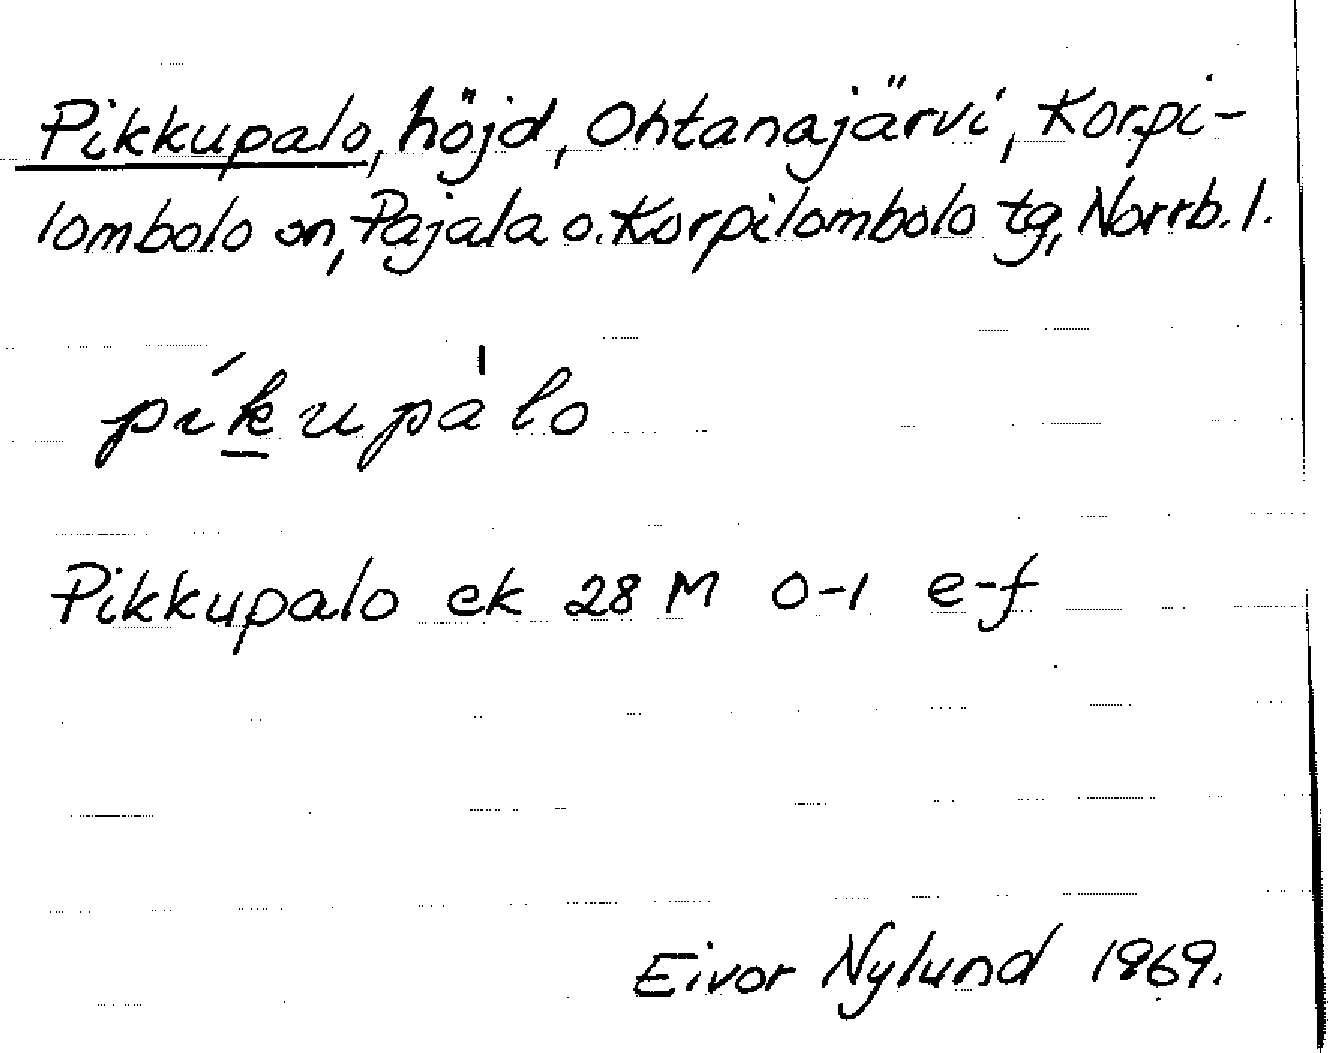 Pikkupalo, höjd, Ohtanajärvi, Korpi-
lombolo sn, Pajala o. Korpilombolo tg, Norrb. l.
pík̲upàlo
Pikkupalo ek 28 M 0-1 e-f
Eivor Nylund 1969.